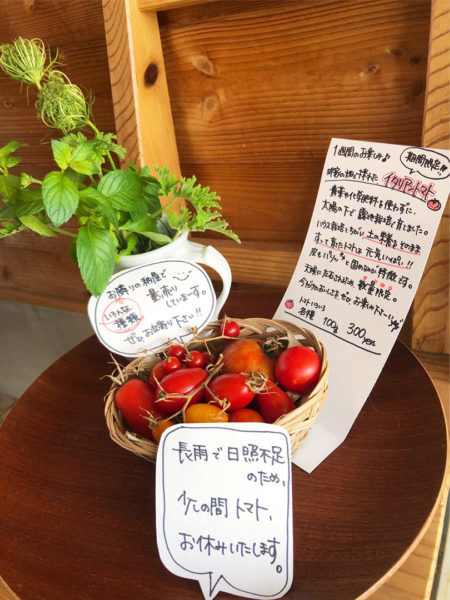 1週間のお楽しみ♪
期間限定!!
イタリアントマト
農薬や化学肥料を使わずに、
太陽の下で露地栽培で育ちました。
ハウス栽培とちがい、土の栄養をそのまま
すって育ったトマトは元気いっぱい!!
皮もパリッと固めなのが特徴です。
天候に左右されるため数量限定。
トマトいろいろ
各種 100g 300yen
お隣りの納屋で
いろんな種類
量り売り
しています。
ぜひ、お立寄り下さい!!
長雨で日照不足
のため、
少しの間トマト、
お休みいたします。